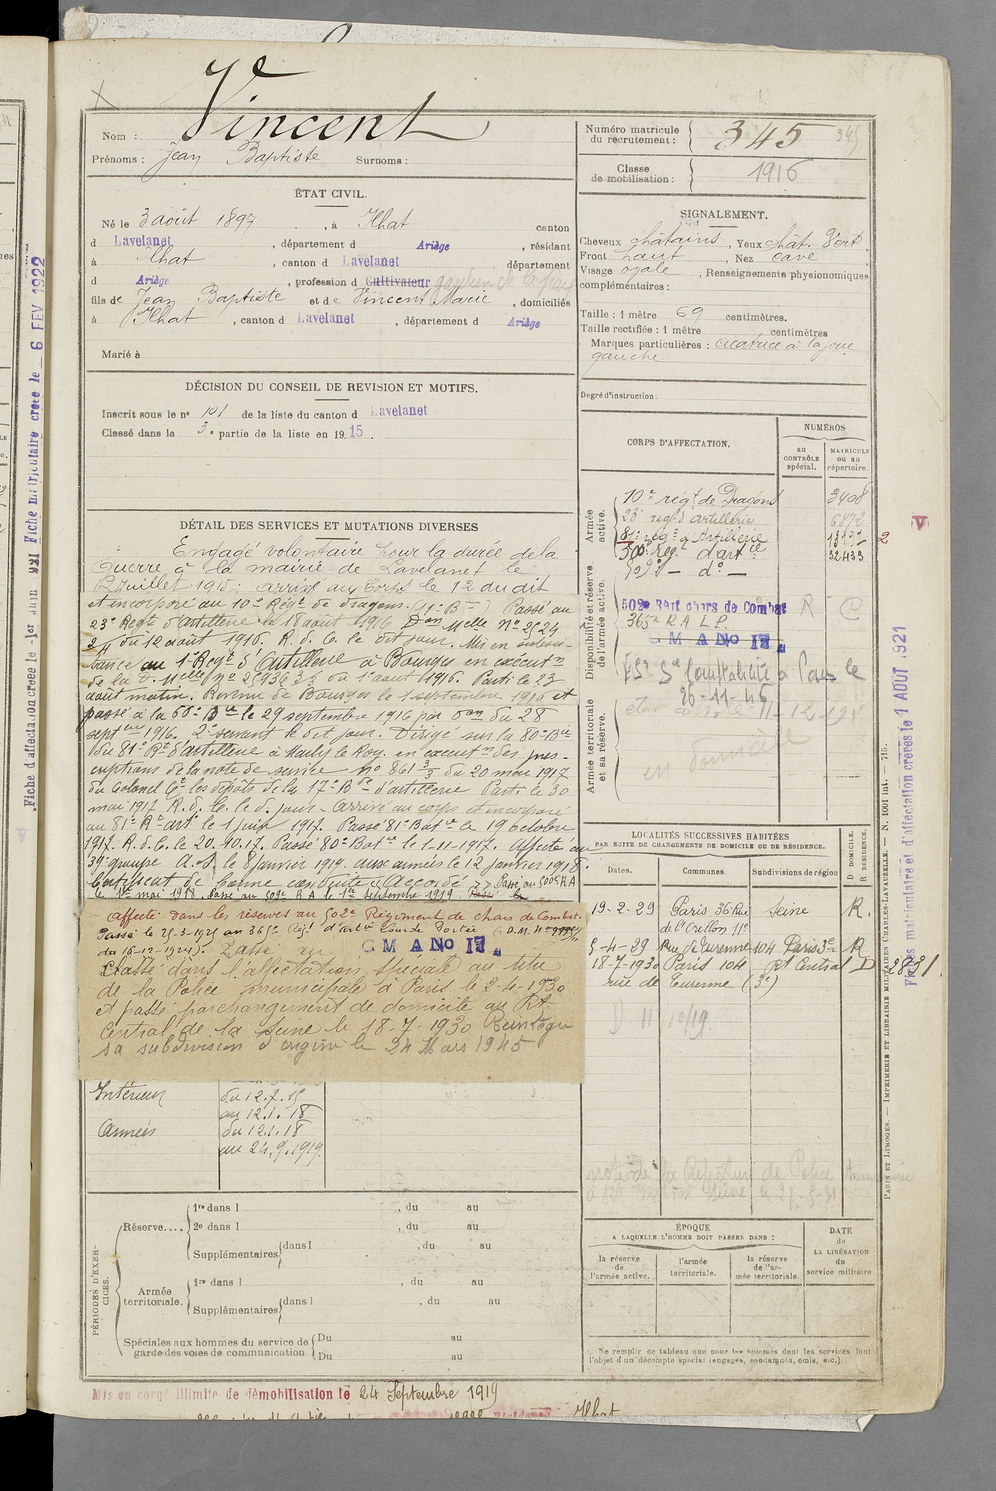 Vincent
Nom :
Prénoms : Jean Baptiste Surnoms :
ÉTAT CIVIL.
Né le 3 août 1897, à Ilhat canton
d Lavelanet, département d Ariège, résidant
à Ilhat, canton d Lavelanet département
d Ariège, profession d Cultivateur gardien de la paix
fils de Jean Baptiste et de Vincent Marie, domiciliés
à Ilhat, canton d Lavelanet, département d Ariège
Marié à
DÉCISION DU CONSEIL DE REVISION ET MOTIFS.
Inscrit sous le nº 101 de la liste du canton d Lavelanet
Classé dans la 3e partie de la liste en 1915.
DÉTAIL DES SERVICES ET MUTATIONS DIVERSES
Engagé volontaire pour la durée de la
Guerre à la mairie de Lavelanet le
Juillet 1915. arrivé au Corps le 12 du dit
et incorporé au 10e Régt de dragons. (11e Bie) Passé au
23e Régt d'artillerie le 18 août 1916 Don Mlle Nº 2524
du 12 août 1916. R. d. C. le dit jour. Mis en subsis-
tance au 1er Régt d'Artillerie à Bourges en exécutn
de la d. Mlle nº 23936 du 1er août 1916. Parti le 23
août matin. Revenu de Bourges le 1 septembre 1916 et
passé à la 68e Bie le 29 septembre 1916 par Don du 28
septbre 1916. 2e servant le dit jour. Dirigé sur la 80e Bie
du 81e Rt d'artillerie à Marly le Roy. en execut n des pres-
criptions de la note de service nº 861 3/3 du 20 mai 1917
du Colonel Ct les dépôts de la 17e Bde d'artillerie Parti le 30
mai 1917. R. d. C. le d. jour. arrivé au corps et incorporé
au 81e Rt art le 1 juin 1917. Passé 81e Batie le 19 octobre
1917. R. d. C. le 20.10.17. Passé 80e Batie le 1-11-1917. Affecté au
39e groupe A.A. le 8 janvier 1919. aux armées le 12 janvier 1918
Certificat de bonne conduite "Accordé" Passé au 500e R A
le 1er mai 1919. Passé au 509e R A le 1er Septembre 1919
Affecté dans les réserves au 502e Régiment de chars de Combat.
Passé le 25-3-1925 au 365e Régt d'artie Lourde Portée (D.M. nº
du 16-12-1924). Passé au C M A No 17
Classé dans l'affectation spéciale au titre
de la Police municipale à Paris le 2-4-1930
et passé par changement de domicile au Rt
Central de la Seine le 18-7-1930 Réintègre
sa subdivision d'origine le 24 Mars 1945
Intérieur du 12.7.15
au 12.1.18
Armées du 12.1.18
au 24.9.1919.
PÉRIODES D'EXERCICES.
Réserve.... 1re dans l , du au
2e dans l , du au
Supplémentaires dans l , du au
Armée territoriale. 1re dans l , du au
Supplémentaires dans l , du au
Spéciales aux hommes du service de garde des voies de communication Du au
Du au
Mis en congé illimité de démobilisation le 24 Septembre 1919
Ilhat
Numéro matricule du recrutement : 345 345
Classe de mobilisation : 1916
SIGNALEMENT.
Cheveux châtains, Yeux chât. Vert
Front haut, Nez cave
Visage ovale, Renseignements physionomiques
complémentaires :
Taille : 1 mètre 69 centimètres.
Taille rectifiée : 1 mètre centimètres
Marques particulières : cicatrice à la joue
gauche
Degré d'instruction :
CORPS D'AFFECTATION.
NUMÉROS
au CONTRÔLE spécial.
MATRICULE ou au répertoire.
Armée active.
10e régt de Dragons 3408
23e régt d'artillerie 6872
81e régt d'Artillerie 13197
500e Régt d'artie 32433
509e — do —
Disponibilité et réserve de l'armée active.
502e Regt chars de Combat R C
365e R A L P.
C M A No 17
26-11-45
11-12-19
Armée territoriale et sa réserve.
LOCALITÉS SUCCESSIVES HABITÉES
PAR SUITE DE CHANGEMENTS DE DOMICILE OU DE RÉSIDENCE.
Dates. Communes. Subdivisions de région D DOMICILE. R RÉSIDENCE.
19-2-29 Paris 36 Rue Seine R.
de l'Orillon 11e
5-4-29 Rue de Turenne 104 Paris 3e R
18-7-1930 Paris 104 Rt Central D
rue de Turenne (3e)
note de la Préfecture de Police
ÉPOQUE
A LAQUELLE L'HOMME DOIT PASSER DANS :
la réserve de l'armée active.
l'armée territoriale.
la réserve de l'armée territoriale.
DATE de LA LIBÉRATION du service militaire.
Ne remplir ce tableau que pour les hommes dont les services font
l'objet d'un décompte spécial (engagés, condamnés, omis, etc.)
Fiche d'affectation créée le 1er Juin 1921 Fiche matriculaire créée le 6 FEV 1922
Fiches matriculaire et d'affectation créées le 1 AOUT 1921
PARIS ET LIMOGES. — IMPRIMERIE ET LIBRAIRIE MILITAIRES CHARLES-LAVAUZELLE. — N. 1001 Int. — 715.